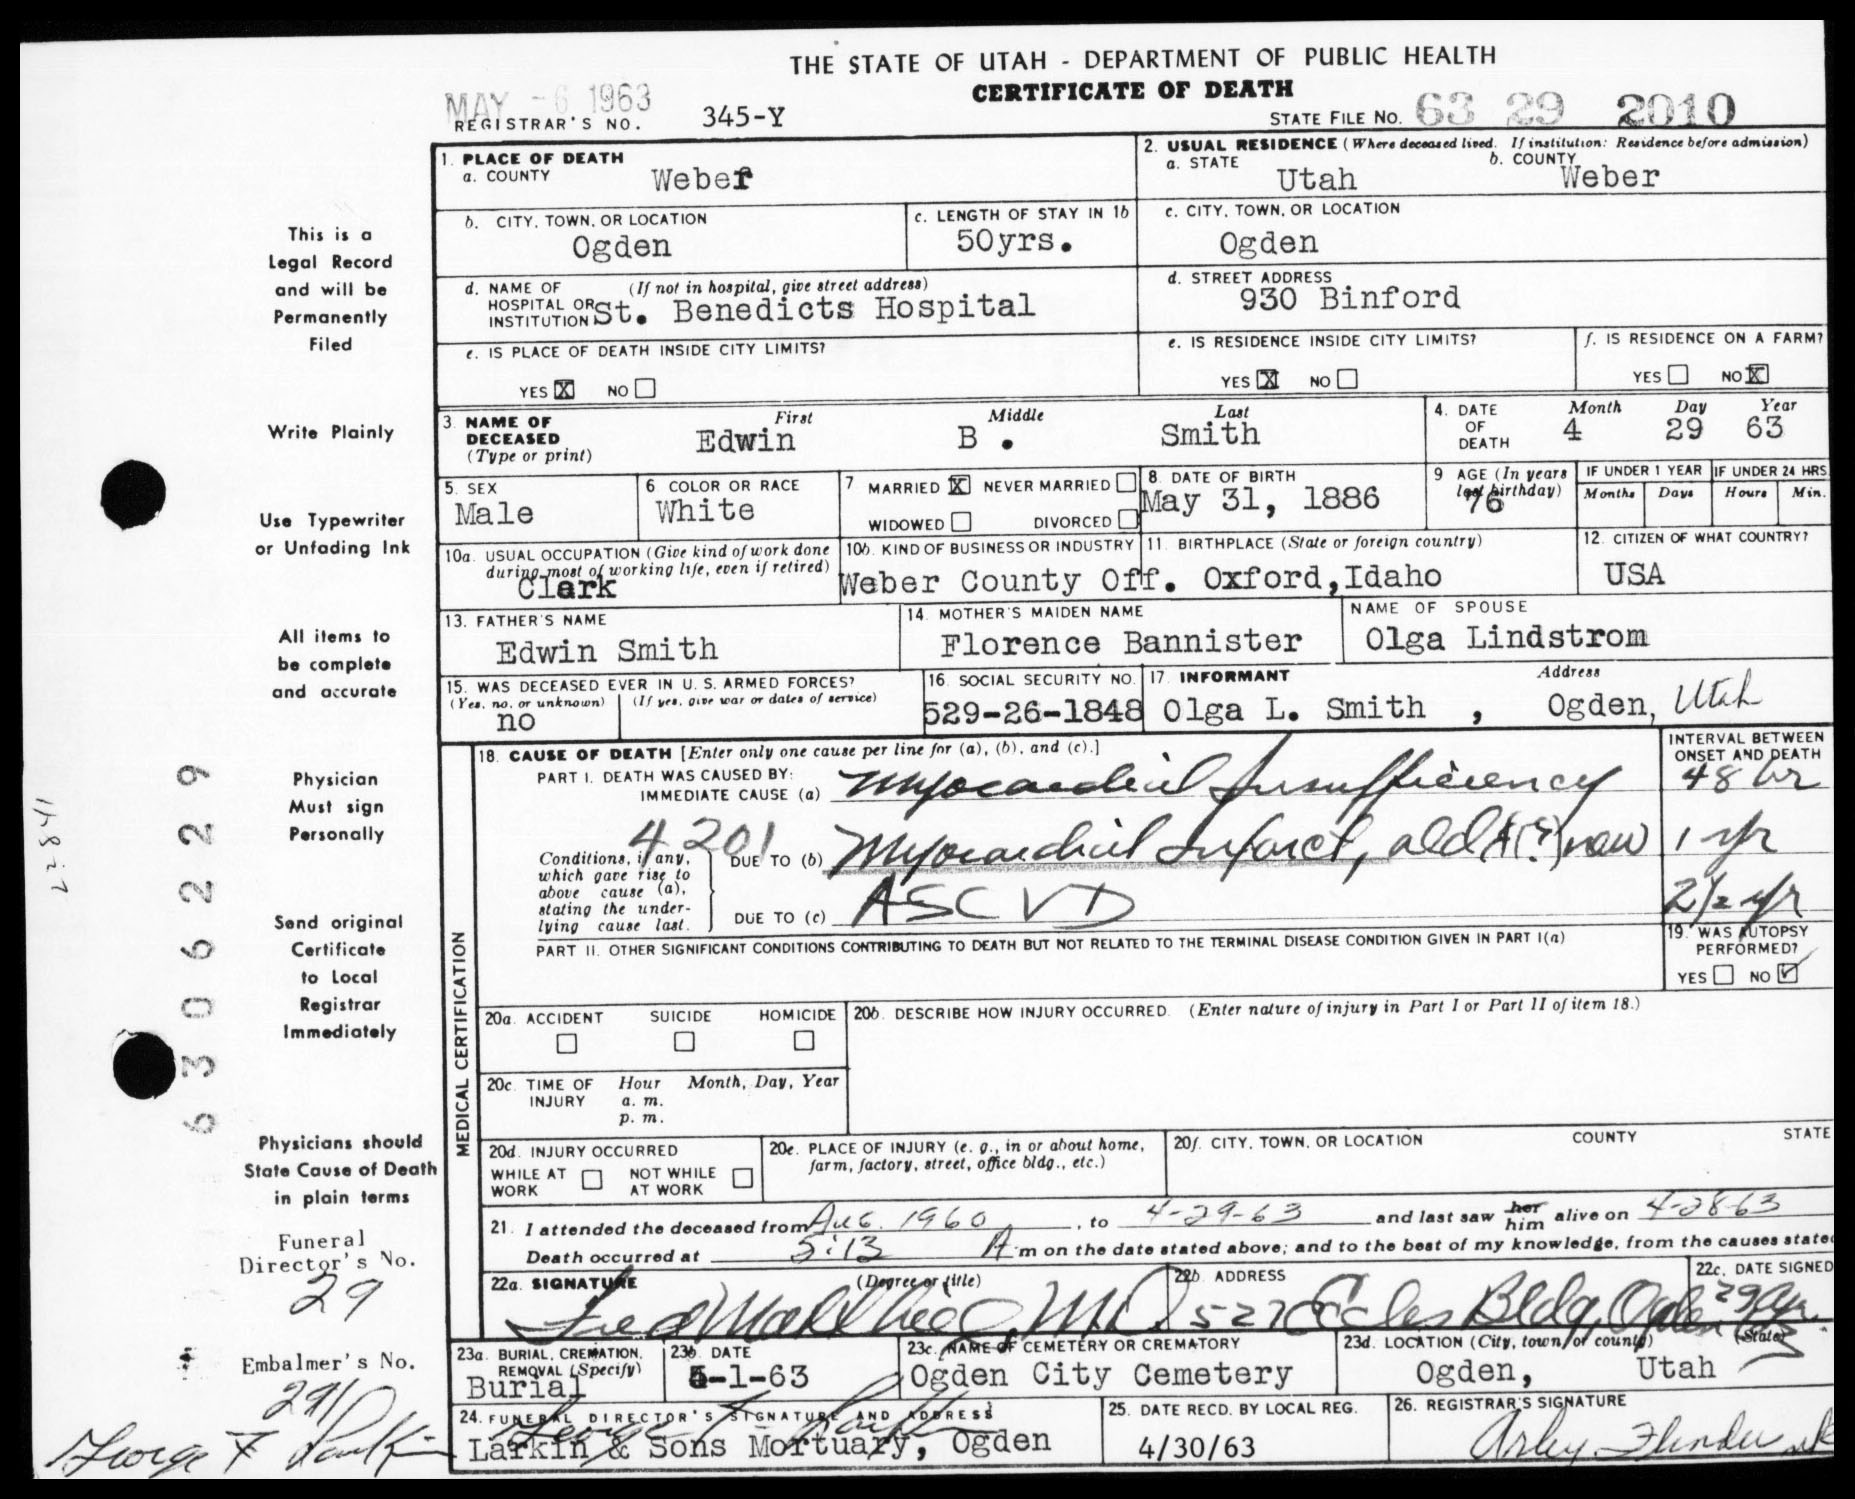 THE STATE OF UTAH - DEPARTMENT OF PUBLIC HEALTH
CERTIFICATE OF DEATH
MAY - 6 1963
REGISTRAR'S NO. 345-Y
STATE FILE NO. 63 29 2010
This is a
Legal Record
and will be
Permanently
Filed
Write Plainly
Use Typewriter
or Unfading Ink
All items to
be complete
and accurate
Physician
Must sign
Personally
Send original
Certificate
to Local
Registrar
Immediately
Physicians should
State Cause of Death
in plain terms
Funeral
Director's No.
29
Embalmer's No.
291
George F Larkin
63 06229
1. PLACE OF DEATH
a. COUNTY Weber
2. USUAL RESIDENCE (Where deceased lived. If institution: Residence before admission)
a. STATE Utah b. COUNTY Weber
b. CITY, TOWN, OR LOCATION Ogden
c. LENGTH OF STAY IN 1b 50yrs.
c. CITY, TOWN, OR LOCATION Ogden
d. NAME OF HOSPITAL OR INSTITUTION (If not in hospital, give street address) St. Benedicts Hospital
d. STREET ADDRESS 930 Binford
e. IS PLACE OF DEATH INSIDE CITY LIMITS?
YES X NO
e. IS RESIDENCE INSIDE CITY LIMITS?
YES X NO
f. IS RESIDENCE ON A FARM?
YES NO X
3. NAME OF DECEASED (Type or print) First Edwin Middle B . Last Smith
4. DATE OF DEATH Month 4 Day 29 Year 63
5. SEX Male
6 COLOR OR RACE White
7 MARRIED X NEVER MARRIED
WIDOWED DIVORCED
8. DATE OF BIRTH May 31, 1886
9 AGE (In years last birthday) 76
IF UNDER 1 YEAR Months Days
IF UNDER 24 HRS. Hours Min.
10a. USUAL OCCUPATION (Give kind of work done during most of working life, even if retired) Clerk
10b. KIND OF BUSINESS OR INDUSTRY Weber County Off.
11. BIRTHPLACE (State or foreign country) Oxford,Idaho
12. CITIZEN OF WHAT COUNTRY? USA
13. FATHER'S NAME Edwin Smith
14. MOTHER'S MAIDEN NAME Florence Bannister
NAME OF SPOUSE Olga Lindstrom
15. WAS DECEASED EVER IN U. S. ARMED FORCES?
(Yes, no, or unknown) (If yes, give war or dates of service)
no
16. SOCIAL SECURITY NO. 529-26-1848
17. INFORMANT Address
Olga L. Smith , Ogden, Utah
MEDICAL CERTIFICATION
18. CAUSE OF DEATH [Enter only one cause per line for (a), (b), and (c).]
INTERVAL BETWEEN ONSET AND DEATH
PART I. DEATH WAS CAUSED BY:
IMMEDIATE CAUSE (a) Myocardial Insufficiency 48 hr
4201
Conditions, if any, which gave rise to above cause (a), stating the underlying cause last.
DUE TO (b) Myocardial Infarct, old &(?) new 1 yr
DUE TO (c) ASCVD 2 1/2 yr
PART II. OTHER SIGNIFICANT CONDITIONS CONTRIBUTING TO DEATH BUT NOT RELATED TO THE TERMINAL DISEASE CONDITION GIVEN IN PART I(a)
19. WAS AUTOPSY PERFORMED?
YES NO ✓
20a. ACCIDENT SUICIDE HOMICIDE
20b. DESCRIBE HOW INJURY OCCURRED. (Enter nature of injury in Part I or Part II of item 18.)
20c. TIME OF INJURY Hour a. m. p. m. Month, Day, Year
20d. INJURY OCCURRED
WHILE AT WORK NOT WHILE AT WORK
20e. PLACE OF INJURY (e. g., in or about home, farm, factory, street, office bldg., etc.)
20f. CITY, TOWN, OR LOCATION COUNTY STATE
21. I attended the deceased from Aug. 1960, to 4-29-63 and last saw her him alive on 4-28-63
Death occurred at 5:13 A m on the date stated above; and to the best of my knowledge, from the causes stated
22a. SIGNATURE (Degree or title) M.D.
22b. ADDRESS 527 Eccles Bldg, Ogden
22c. DATE SIGNED 29 Apr. 63
23a. BURIAL, CREMATION, REMOVAL (Specify) Burial
23b. DATE 5-1-63
23c. NAME OF CEMETERY OR CREMATORY Ogden City Cemetery
23d. LOCATION (City, town, or county) (State) Ogden, Utah
24. FUNERAL DIRECTOR'S SIGNATURE AND ADDRESS
George F Larkin
Larkin & Sons Mortuary, Ogden
25. DATE RECD. BY LOCAL REG. 4/30/63
26. REGISTRAR'S SIGNATURE